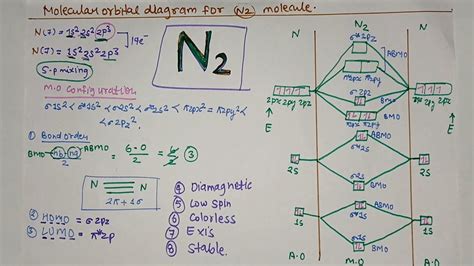 Molecular orbital diagram for N2 molecule.
N(7) = 1s² 2s² 2p³
N(7) = 1s² 2s² 2p³
14e⁻
S-p mixing
M.O configuration
σ1s² < σ*1s² < σ2s² < σ*2s² < π2px² = π2py² <
< σ2pz²
① Bond order
BMO nb - na ABMO = 6-0 / 2 = 6/2 ③
N ≡ N
2π + 1σ
② HOMO = σ2pz
③ LUMO = π*2p
N2
④ Diamagnetic
⑤ Low spin
⑥ Colorless
⑦ Exis
⑧ Stable.
N N2 N
σ*2pz
ABMO
π2px π2py
2px 2py 2pz
σ2pz
BMO
2px 2py 2pz
π2px π2py
BMO
E
E
ABMO
σ*2s
2s
2s
σ2s
BMO
ABMO
σ*1s
1s
1s
σ1s
BMO
A.O M.O A.O